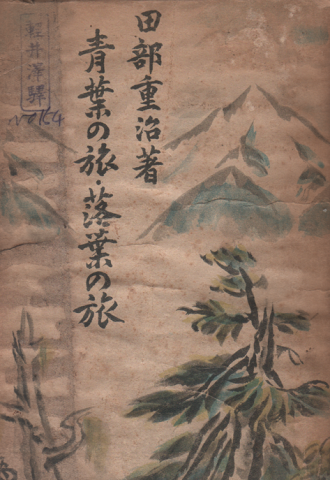 田部重治著
青葉の旅 落葉の旅
軽井澤驛
No 154